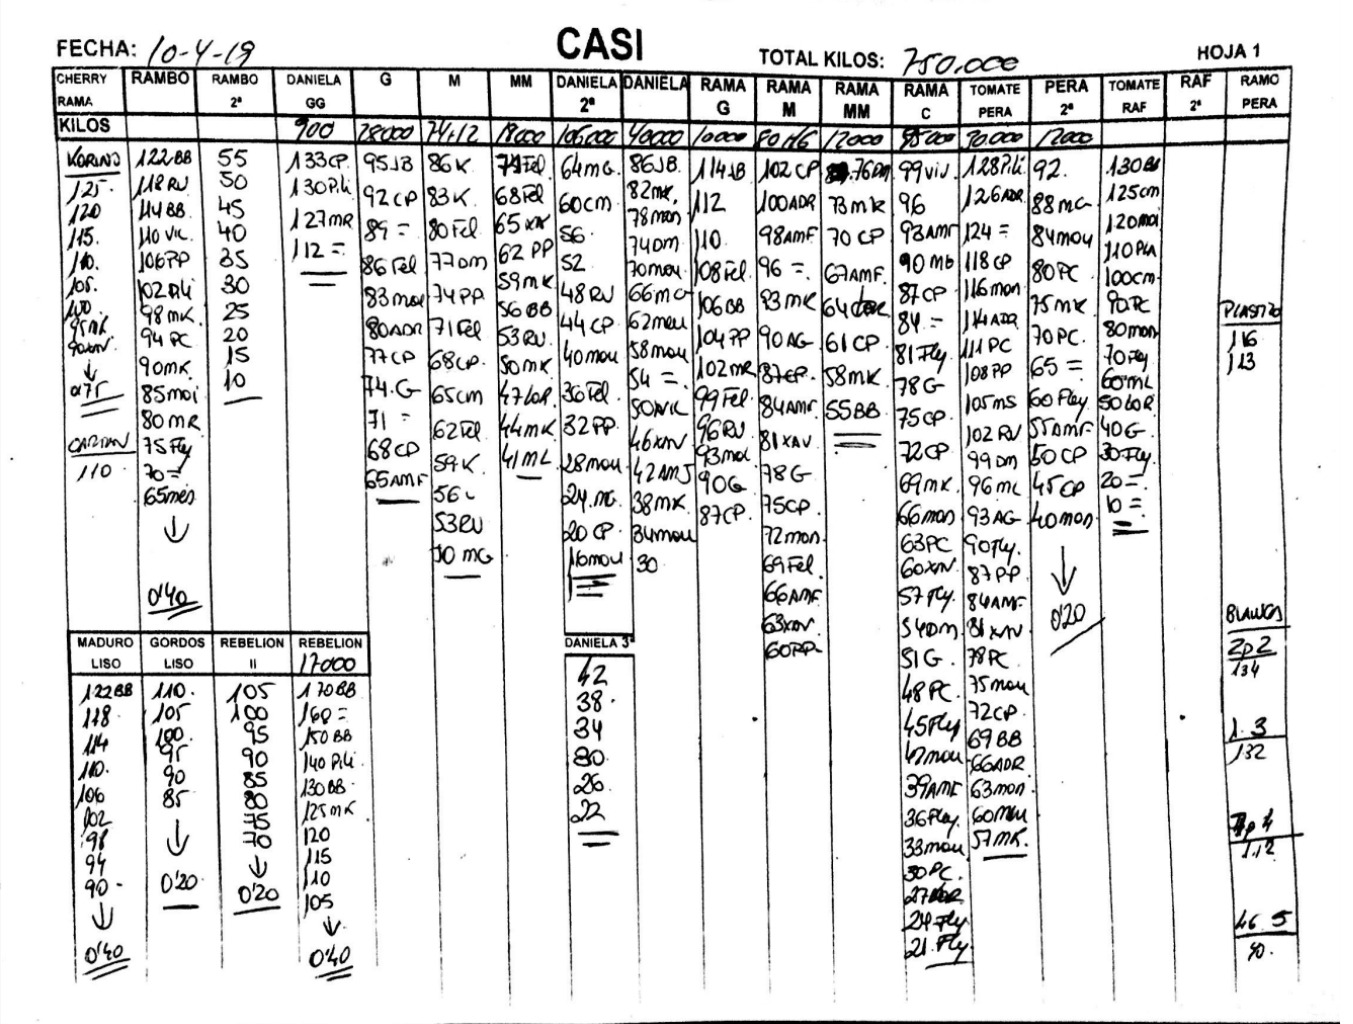 CASI
FECHA: 10-4-19
TOTAL KILOS: 750.000
HOJA 1
CHERRY RAMA
RAMBO
RAMBO 2ª
DANIELA GG
G
M
MM
DANIELA 2ª
DANIELA
RAMA G
RAMA M
RAMA MM
RAMA C
TOMATE PERA
PERA 2ª
TOMATE RAF
RAF 2ª
RAMO PERA
KILOS
900
28000
18000
106000
40000
10000
12000
12000
125
120
115.
110.
105.
100
↓
110
122BB
118RV
114BB
110 VIC
106PP
102Pili
98MK
94 PC
90MK.
85moi
80MR
75Fly
70=
65mes
↓
0'40
55
50
45
40
35
30
25
20
15
10
133CP.
130Pili
127MR
112 =
95JB
92CP
89 =
86Fel
83mou
80ADR
77CP
74.G
71 =
68CP
65AMF
86K
83K.
80Fel
77DM
74PP.
71Fel
68CP.
65cm
62Fel
59K.
56
53RV
68Fel
65XAV
62 PP
59MK
56BB
53RV
50MK
47LOR
44MK
41ML
64MG.
60CM
56.
52
48RV
44CP
40mou
36Fel
32PP.
28mou
24.MG.
20CP.
16mou
86JB.
82MK.
78mon
74DM
70mou
66MG
62mou
58mou
54 =.
50VIC
46XAV
42AMJ
38MK
34mou
30
114JB
112
110
108Fel
106BB
104PP
102MR
99Fel
96RV
93mou
90G
87CP.
102CP
100ADR
98AMF
96 =.
93MK
90AG
87CP.
84AMF
81XAV
78G
75CP.
72mon
69Fel
66AMF
63XAV
60PP.
76DM
73MK
70 CP
67AMF
64LOR
61CP
58MK
55BB
99VIV
96
93AMF
90MG
87CP
84. =
81Fly
78G
75CP.
72CP.
69MK.
66mon
63PC
60XAV
57Fly.
54DM
51G.
48PC.
45Fly
42mou
39AMF
36Fly.
33mou
30PC.
27LOR
24Fly
21.Fly
128Pili
126ADR
124 =
118CP
116mon
114ADR
111PC
108PP
105MS
102RV
99DM
96ML
93AG
90Fly.
87PP
84AMF
81XAV
78PC
75mou
72CP.
69BB
66ADR
63mon
60mou
57MK.
92.
88MG
84mou
80PC
75MK
70PC.
65 =
60Fly
55AMF
50CP
45CP
40mon
↓
0'20
130BB
125CM
120moi
110PIA
100cm
90PC
80mon
70Fly
60ML
50LOR
40G
30Fly.
20=
10=
116
113
BLANCA
2p2
134
1.3
132
1.12
46.5
90.
MADURO LISO
GORDOS LISO
REBELION II
REBELION
17000
122BB
118
114
110.
106
102
98
94
90
↓
0'40
110.
105
100
95
90
85
↓
0'20
105
100
95
90
85
80
75
70
↓
0'20
170BB
160=
150BB
140Pili
130BB
125MK
120
115
110
105
↓
0'40
DANIELA 3ª
42
38
34
30
26
22